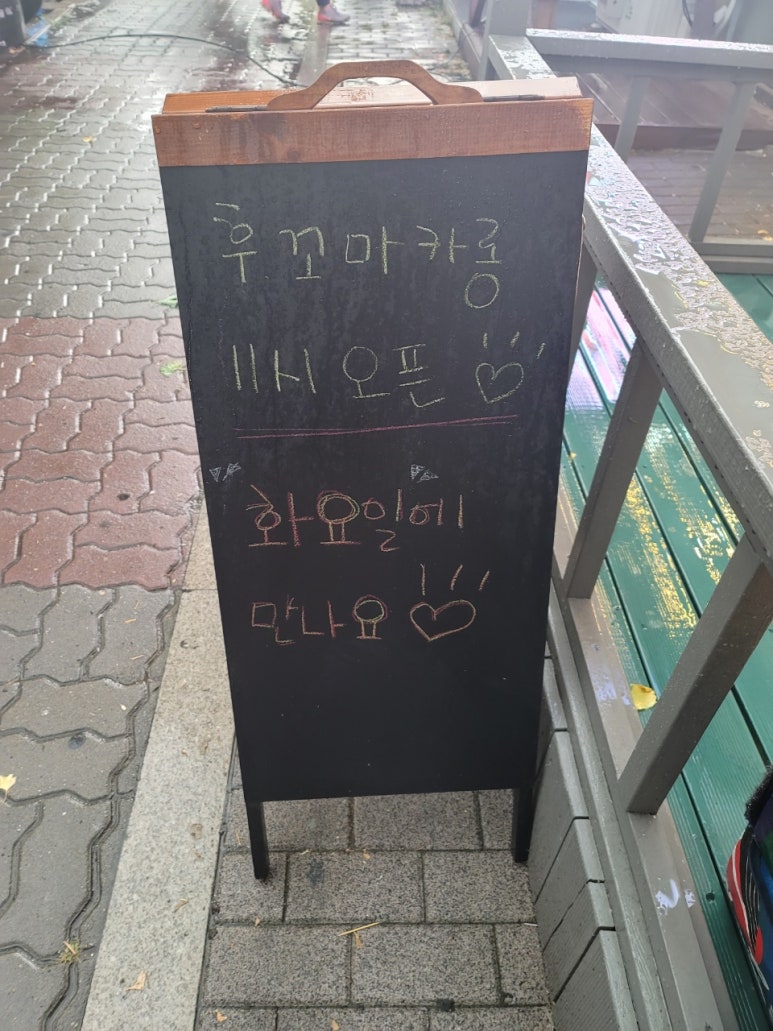 후꼬마카롱
11시 오픈
화요일에
만나요